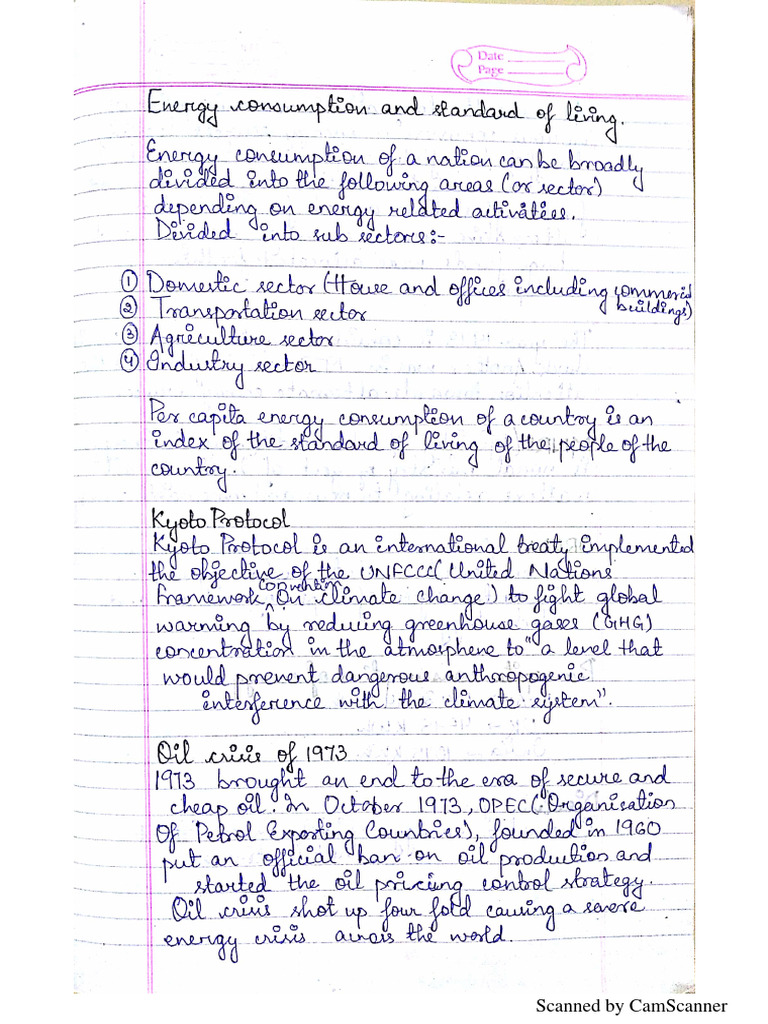 Date
Page
Energy consumption and standard of living.
Energy consumption of a nation can be broadly
divided into the following areas (or sector)
depending on energy related activities.
Divided into sub sectors:-
① Domestic sector (House and offices including commercial buildings)
② Transportation sector
③ Agriculture sector
④ Industry sector
Per capita energy consumption of a country is an
index of the standard of living of the people of the
country.
Kyoto Protocol
Kyoto Protocol is an international treaty implemented
the objective of the UNFCCC (United Nations
Framework Convention On climate change) to fight global
warming by reducing greenhouse gases (GHG)
concentration in the atmosphere to "a level that
would prevent dangerous anthropogenic
interference with the climate system".
Oil crisis of 1973
1973 brought an end to the era of secure and
cheap oil. In October 1973, OPEC (Organisation
Of Petrol Exporting Countries), founded in 1960
put an official ban on oil production and
started the oil pricing control strategy.
Oil crisis shot up four fold causing a severe
energy crisis across the world.
Scanned by CamScanner